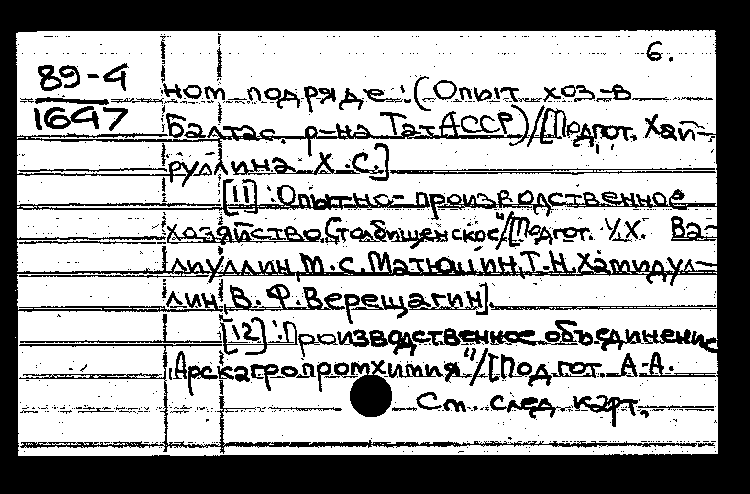 6.
89-4
1647
ном подряде : (Опыт хоз-в
Балтас. р-на ТатАССР)/[Подгот. Хай-
руллина Х.С.]
[11] : Опытно-производственное
хозяйство Столбищенское"/[Подгот. У.Х. Ва-
лиуллин, М.С. Матюшин, Т.Н. Хамидул-
лин, В.Ф. Верещагин].
[12] : Производственное объединение
„Арскагропромхимия"/[Подгот. А.А.
См. след. карт.